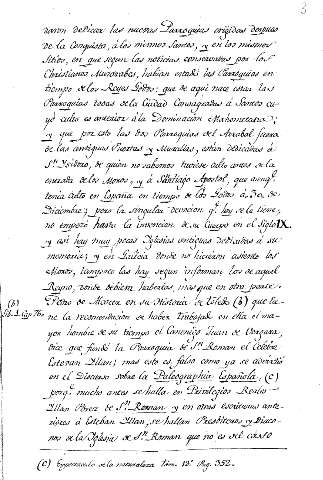 3
varon dedicar las nuevas Parroquias erigidas despues
de la Conquista, á los mismos Santos, y en los mismos
Sitios, en que segun las noticias conservadas por los
Christianos Muzarabes, habian estado las Parroquias en
tiempo de los Reyes Godos; que de aqui nace estar las
Parroquias todas de la Ciudad Consagradas á Santos cu
yo culto es anterior á la Dominacion Mahometana;
y que por esto las dos Parroquias del Arrabal fuera
de las antiguas Puertas y Murallas, están dedicadas á
Sn. Isidoro, de quien no sabemos tuviese culto antes de la
entrada de los Moros, y á Santiago Apostol, que aunq.
tenia culto en España en tiempo de los Godos á 30 de
Diciembre; pero la singular devocion q. hoy se le tiene,
no empezó hasta la invencion de su Cuerpo en el Siglo IX.
y asi hay muy pocas Iglesias antiguas dedicadas á su
memoria; y en Galicia donde no hicieron asiento los
Moros, tampoco las hay segun informan los de aquel
Reyno, donde debiera haberlas mas que en otra parte.
Pedro de Alcocer en su Historia de Toledo (b) que tie-
ne la recomendacion de haber trabajado en ella el ma-
yor hombre de su tiempo el Canonigo Juan de Vergara,
dice que fundó la Parroquia de Sn. Roman el Celebre
Esteban Illan; mas esto es falso como ya se advirtió
en el Discurso sobre la Paleographia Española, (c)
porq. mucho antes se halla en Privilegios Reales
Illan Perez de Sn. Roman, y en otras escrituras ante-
riores á Esteban Illan, se hallan Presbiteros y Diaco-
nos de la Iglesia de Sn. Roman que no es del caso
(b)
Lib. 1. Cap. 76.
(c) Espectaculo de la naturaleza tom. 13. Pag. 352.